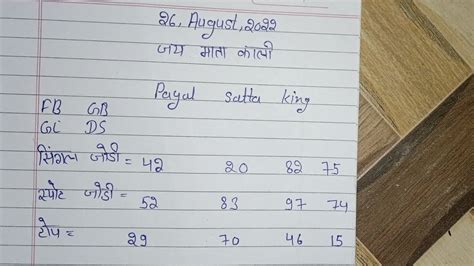 26, August, 2022
जय माता काली
Payal satta king
FB GB
GL DS
सिंगल जोडी = 42 20 82 75
स्पोट जोडी = 52 83 97 74
टोप = 29 70 46 15